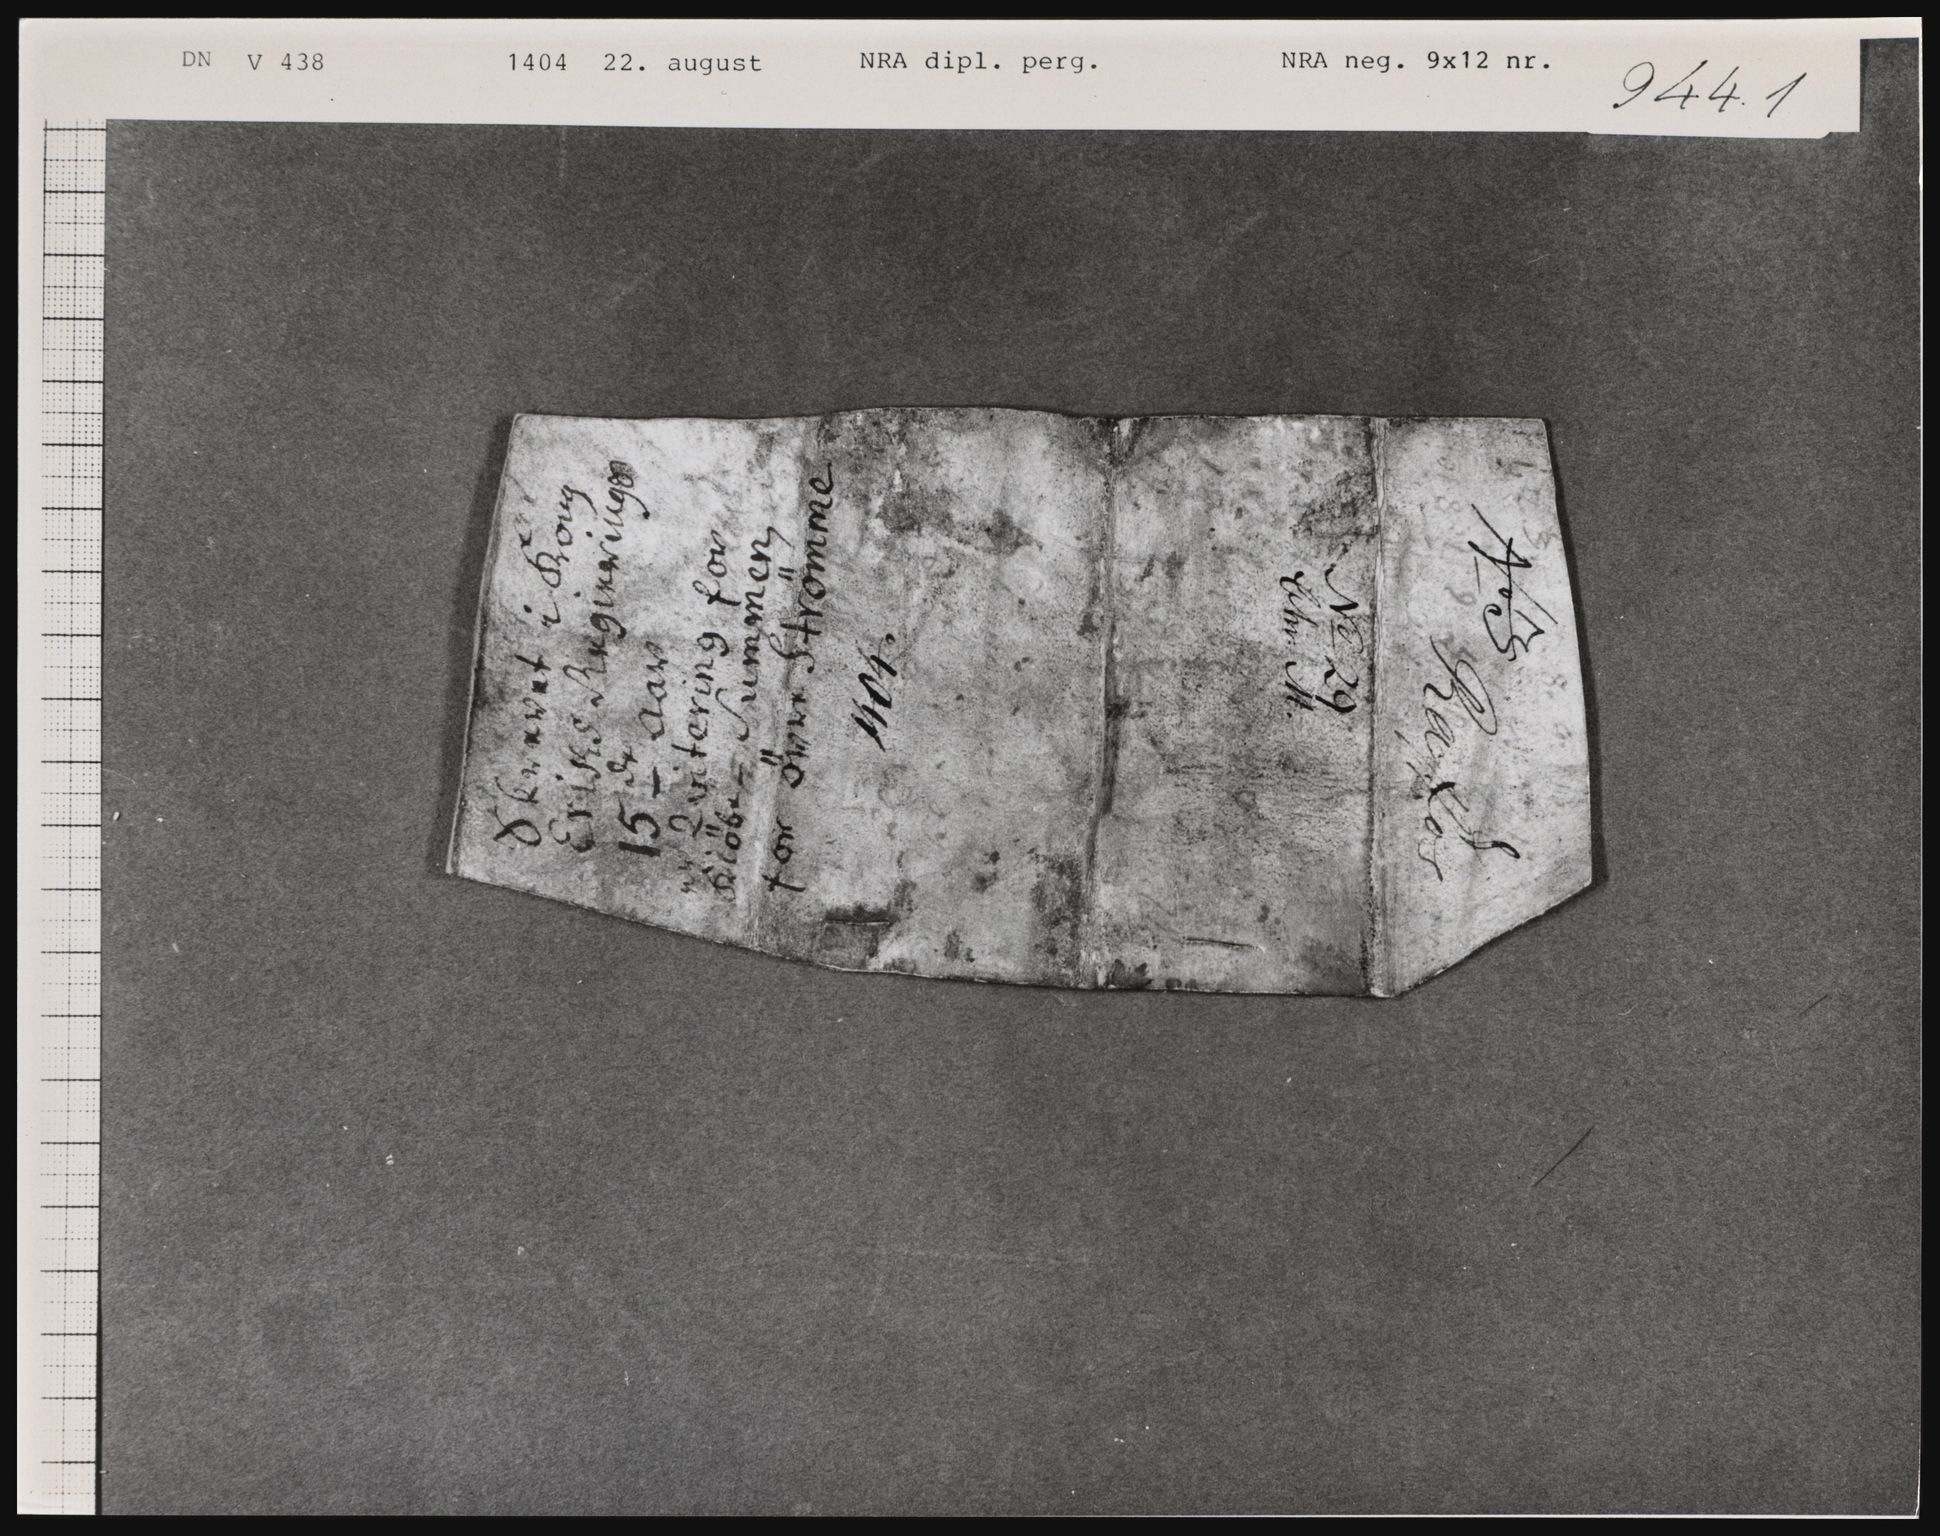 DN V 438 1404 22. august NRA dipl. perg. NRA neg. 9x12 nr. 944.1
Skrevet i Kong
Erichs Regierings
15de Aar
Qvitering for
Kiøbe Summen
for öwre Strömme
1404.
No 29
No 3